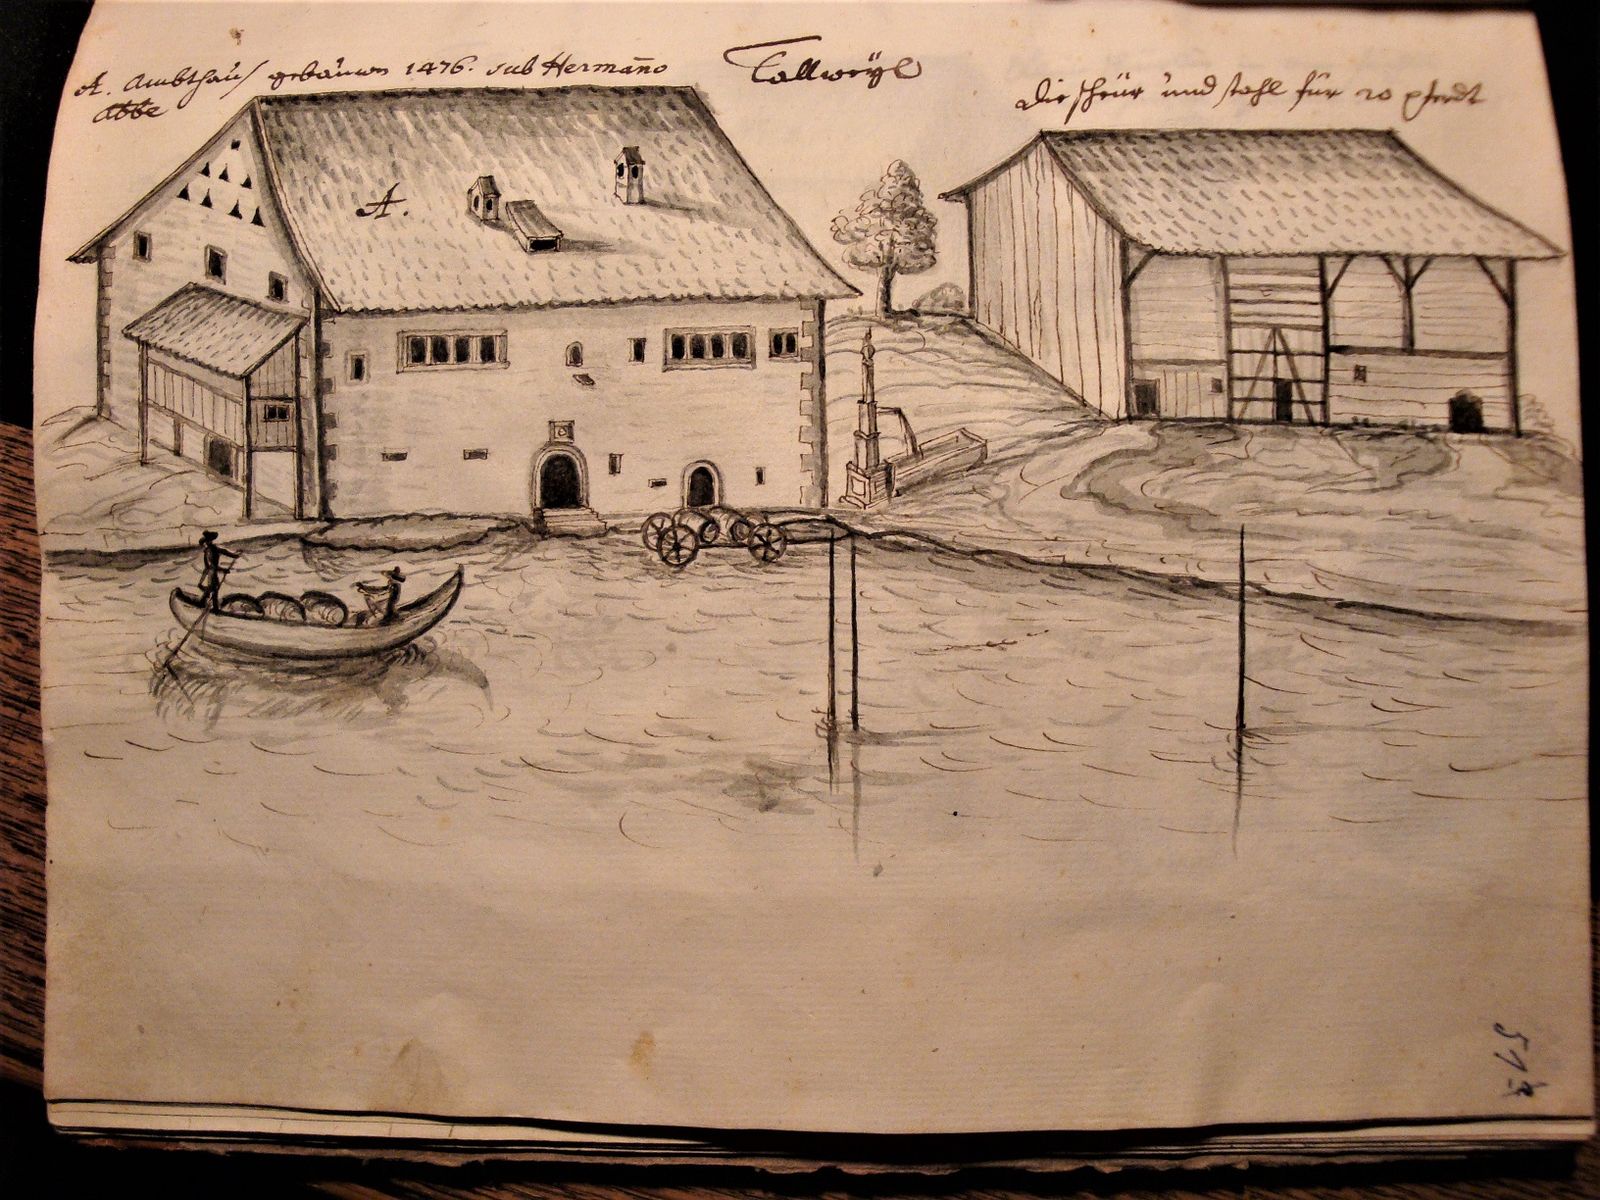 A. Ambthauß gebauwen 1476. sub Hermaño
Abbe
Tallweÿl
die scheür und stahl für 20 pferdt
A.